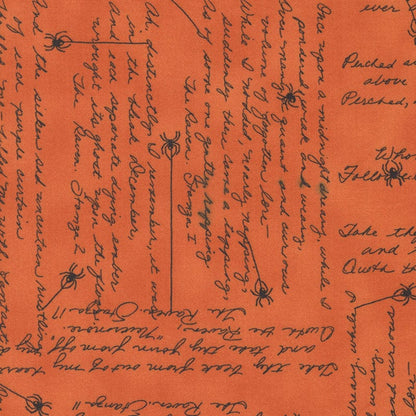 Once upon a midnight dreary, while I
pondered, weak and weary,
Over many a quaint and curious
volume of forgotten lore—
While I nodded, nearly napping,
suddenly there came a tapping,
As of some one gently rapping,
The Raven. Stanza I
Ah, distinctly I remember, it was
in the bleak December,
And each separate dying ember
wrought its ghost upon the floor.
The Raven. Stanza 2
And the silken sad uncertain rustling
of each purple curtain
ever
Perched
above
Perched,
Follow
Take thy
and
Quoth
Take thy beak from out of my
and take thy form from off my
Quoth the Raven, "Nevermore."
The Raven. Stanza 17
The Raven. Stanza